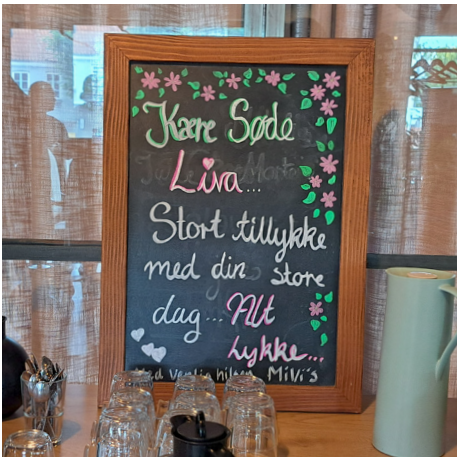 Kære Søde
Liva...
Stort tillykke
med din store
dag... Alt
Lykke...
Med venlig hilsen MiVi's